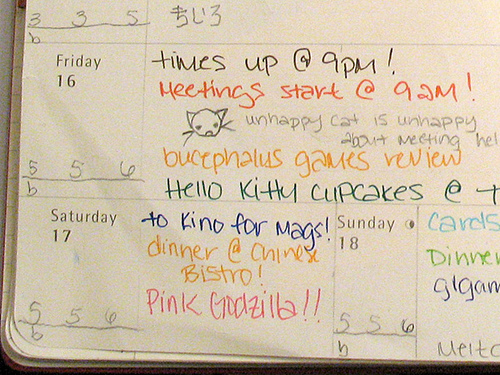 3 3 5
ちいろ
b
Friday
16
times up @ 9pm!
Meetings start @ 9am!
unhappy cat is unhappy
about meeting hel
bucephalus games review
5 5 6
b
Hello Kitty cupcakes @ t
Saturday
17
to Kino for Mags!
dinner @ Chinese
Bistro!
Pink Godzilla!!
5 5 6
b
Sunday
18
Cards
Dinner
gigam
5 5 6
b
Meltc